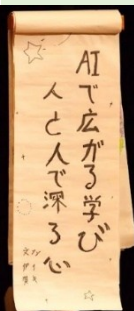 AIで広がる学び
人と人で深る心